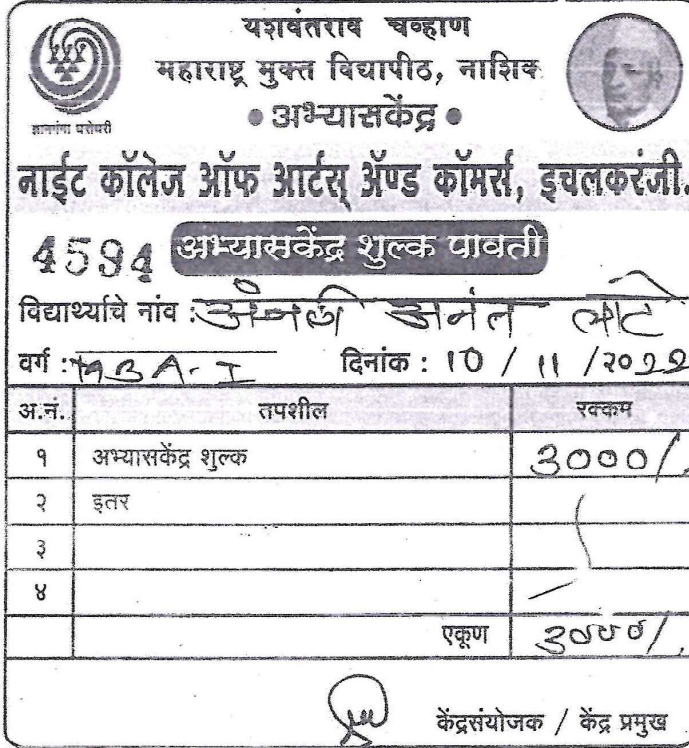 यशवंतराव चव्हाण
महाराष्ट्र मुक्त विद्यापीठ, नाशिक
ज्ञानगंगा घरोघरी
• अभ्यासकेंद्र •
नाईट कॉलेज ऑफ आर्टस् ॲण्ड कॉमर्स, इचलकरंजी.
4594 अभ्यासकेंद्र शुल्क पावती
विद्यार्थ्याचे नांव : अंजली अनंत लाटे
वर्ग : MBA-I दिनांक : 10 / 11 /२०22
अ.नं. तपशील रक्कम
१ अभ्यासकेंद्र शुल्क 3000/-
२ इतर
३
४
एकूण 3000/-
केंद्रसंयोजक / केंद्र प्रमुख